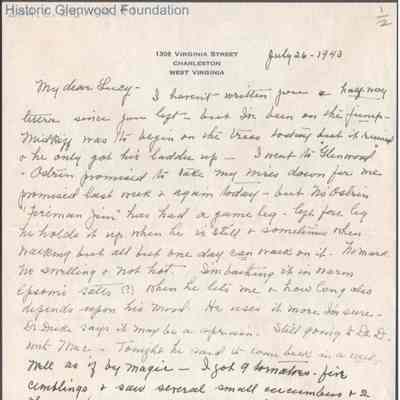 Historic Glenwood Foundation
1/2
1306 VIRGINIA STREET
CHARLESTON
WEST VIRGINIA
July 26 - 1943
My dear Lucy -
I haven't written you a half way
since you left - but I'm been on the jump -
Midkiff was to begin on the trees today but it rained
& he only got his ladder up - I went to "Glenwood"
- Ostrin promised to take my mres down for me
promised last week & again today - but No Ostrin
"Fireman Jim" has had a game leg - Lefe fore leg
he holds it up when he is still & sometimes when
walking but all but one day can walk on it. No mark
No swelling & not hot. I'm bathing it in warm
Epsom salts (?) when he lets me & how long also
depends upon his mood. He uses it more I'm sure -
Dr. Dick says it may be a sprain. Still going to Dr. D.
wit Mac - Tonight he said to come back in a week,
Well as if by magic - I got 9 tomatoes - five
cimblings & saw several small cucumbers & 2